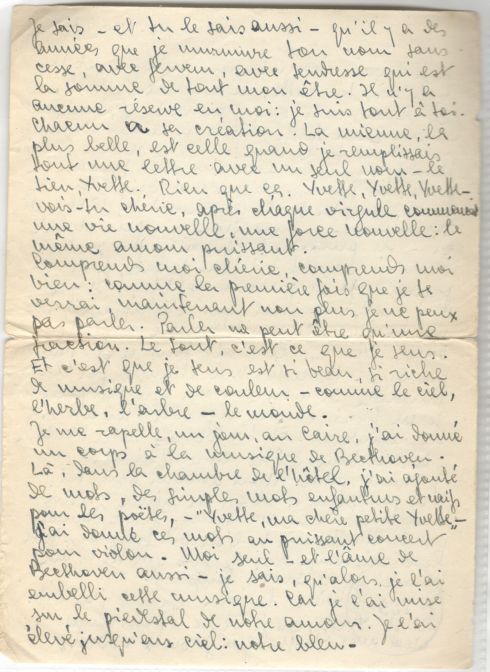 Je sais – et tu le sais aussi – qu'il y a des
années que je murmure ton nom sans
cesse, avec ferveur, avec tendresse qui est
la somme de tout mon être. Il n'y a
aucune réserve en moi: je suis tout à toi.
Chacun a sa création. La mienne, la
plus belle, est celle quand je remplissais
tout une lettre avec un seul nom – le
tien, Yvette. Rien que ça. Yvette, Yvette, Yvette –
vois-tu chérie, après chaque virgule commençait
une vie nouvelle, une force nouvelle: le
même amour puissant.
Comprends moi chérie, comprends moi
bien: comme la première fois que je te
verrai maintenant non plus je ne peux
pas parler. Parler ne peut être qu'une
fraction. Le tout, c'est ce que je sens.
Et c'est que je sens est si beau, si riche
de musique et de couleur – comme le ciel,
l'herbe, l'arbre – le monde.
Je me rapelle, un jour, au Caire, j'ai donné
un corps à la musique de Beethoven.
Là, dans la chambre de l'hôtel, j'ai ajouté
de mots, des simples mots enfantins et naïfs
pour les poëtes, – "Yvette, ma chère petite Yvette" –
J'ai donné ces mots au puissant concert
pour violon. Moi seul – et l'âme de
Beethoven aussi – je sais, qu'alors je l'ai
embelli cette musique. Car je l'ai mise
sur le piedestal de notre amour. Je l'ai
élevé jusqu'aux ciel: notre bleu –